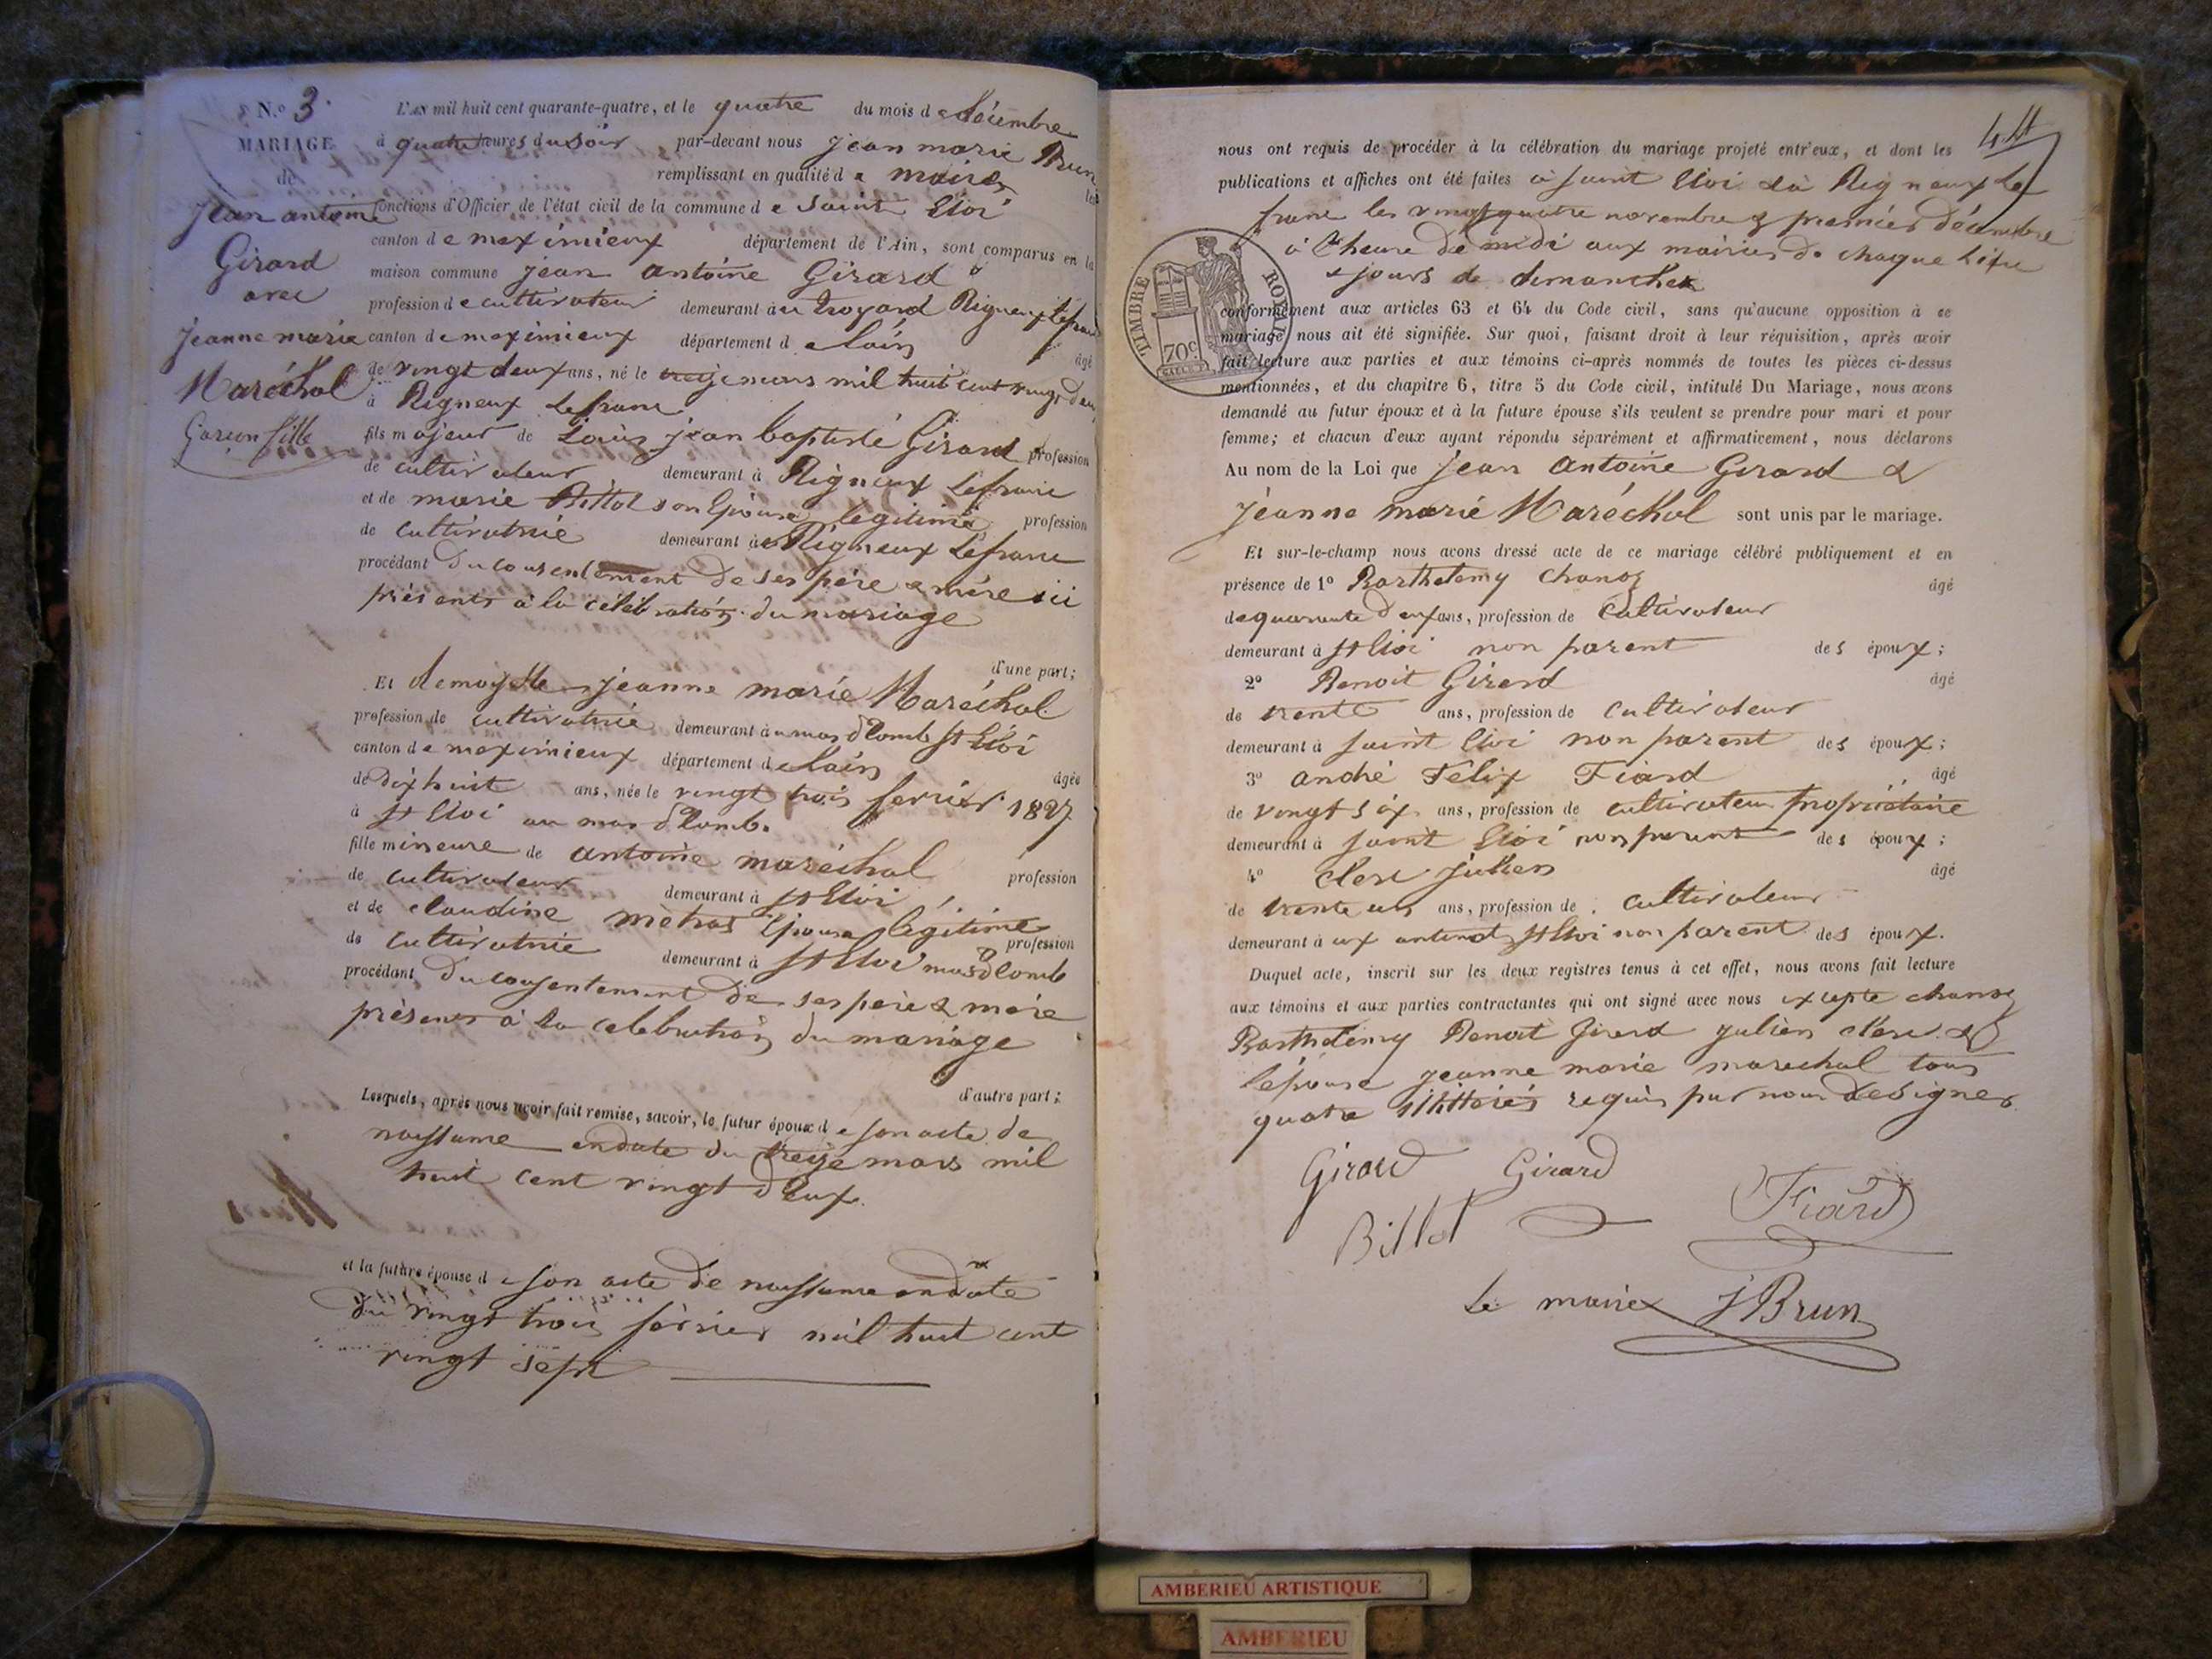 N.º 3.
MARIAGE
de
Jean antoine
Girard
avec
Jeanne marie
Maréchal
Garçon fille
L'AN mil huit cent quarante-quatre, et le quatre du mois de Décembre
à quatre heures du Soir par-devant nous jean marie Brun
remplissant en qualité de maire les
fonctions d'Officier de l'état civil de la commune de Saint Eloi
canton de meximieux département de l'Ain, sont comparus en la
maison commune jean antoine Girard
profession de cultivateur demeurant au troyard Rigneux lefranc
canton de meximieux département de Lain âgé
de vingt deux ans, né le treize mars mil huit cent vingt deux
à Rigneux Lefranc
fils majeur de Louis jean baptiste Girard profession
de cultivateur demeurant à Rigneux Lefranc
et de marie Billot son Epouse legitime profession
de cultivatrice demeurant à Rigneux Lefranc
procédant du consentement de ses père & mère ici
présents à la célébration du mariage
d'une part;
Et demoiselle jeanne marie Maréchal
profession de cultivatrice demeurant au mas dlomb St Eloi
canton de meximieux département de Lain âgée
de dix huit ans, née le vingt trois fevrier 1827
à St Eloi au mas dlomb.
fille mineure de antoine maréchal profession
de cultivateur demeurant à St Eloi,
et de claudine métras Epouse légitime profession
de cultivatrice demeurant à St Eloi mas dlomb
procédant du consentement de ses père & mère
présents à la celebration du mariage
d'autre part;
Lesquels, après nous avoir fait remise, savoir, le futur époux de son acte de
naissance en date du treize mars mil
huit cent vingt deux.
et la future épouse de son acte de naissance en date
du vingt trois février mil huit cent
vingt sept
44
nous ont requis de procéder à la célébration du mariage projeté entr'eux, et dont les
publications et affiches ont été faites à saint Eloi & à Rigneux le
franc les vingt quatre novembre & premier décembre
à heure de midi aux mairies de chaque lieu
& jours de dimanche
TIMBRE ROYAL
70c.
conformément aux articles 63 et 64 du Code civil, sans qu'aucune opposition à ce
mariage nous ait été signifiée. Sur quoi, faisant droit à leur réquisition, après avoir
fait lecture aux parties et aux témoins ci-après nommés de toutes les pièces ci-dessus
mentionnées, et du chapitre 6, titre 5 du Code civil, intitulé Du Mariage, nous avons
demandé au futur époux et à la future épouse s'ils veulent se prendre pour mari et pour
femme; et chacun d'eux ayant répondu séparément et affirmativement, nous déclarons
Au nom de la Loi que jean antoine Girard &
jeanne marie Maréchal sont unis par le mariage.
Et sur-le-champ nous avons dressé acte de ce mariage célébré publiquement et en
présence de 1º Barthelemy Chanoz âgé
de quarante deux ans, profession de cultivateur
demeurant à St Eloi non parent des époux;
2º Benoit Girard âgé
de trente ans, profession de cultivateur
demeurant à saint Eloi non parent des époux;
3º andré Félix Fiard âgé
de vingt six ans, profession de cultivateur propriétaire
demeurant à saint Eloi non parent des époux;
4º Clerc julien âgé
de trente un ans, profession de cultivateur
demeurant à St Eloi non parent des époux.
Duquel acte, inscrit sur les deux registres tenus à cet effet, nous avons fait lecture
aux témoins et aux parties contractantes qui ont signé avec nous excepte chanoz
Barthelemy Benoit Girard julien clerc &
l'épouse jeanne marie marechal tous
quatre illitterés requis par nous de signer
Girard Girard
Billot Fiard
Le maire J Brun
AMBERIEU ARTISTIQUE
AMBERIEU